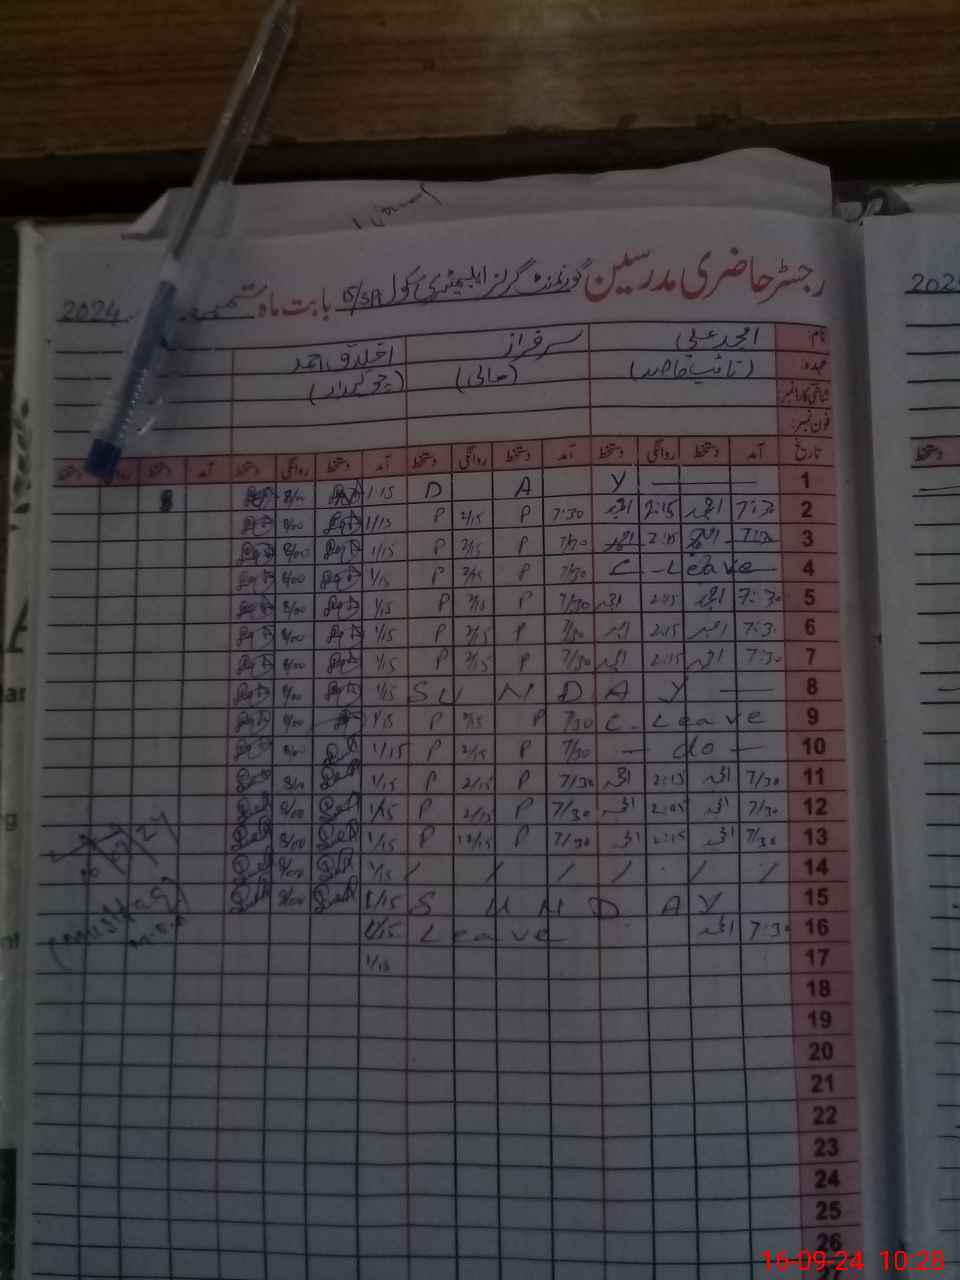 رجسٹر حاضری مدرسین گورنمنٹ گرلز ایلیمنٹری سکول 15/SP بابت ماہ ستمبر 2024
نام: امجد علی سرفراز اخلاق احمد
عہدہ: (نائب قاصد) (مالی) (چوکیدار)
شناختی کارڈ نمبر:
فون نمبر:
تاریخ آمد دستخط روانگی دستخط آمد دستخط روانگی دستخط آمد دستخط روانگی دستخط آمد دستخط روانگی دستخط
8/00 1/15 D A Y 1
8/00 1/15 P 2/15 P 7:30 امجد 2:15 امجد 7:30 2
8/00 1/15 P 2/15 P 7/30 امجد 2:15 امجد 7:30 3
8/00 1/15 P 2/15 P 7/30 C - Leave 4
8/00 1/15 P 2/15 P 7/30 امجد 2:15 امجد 7:30 5
8/00 1/15 P 2/15 P 7/30 امجد 2:15 امجد 7:30 6
8/00 1/15 P 2/15 P 7/30 امجد 2:15 امجد 7:30 7
8/00 1/15 S U N D A Y 8
8/00 1/15 P 2/15 P 7/30 C. Leave 9
8/00 1/15 P 2/15 P 7/30 — do — 10
8/00 1/15 P 2/15 P 7/30 امجد 2:15 امجد 7/30 11
8/00 1/15 P 2/15 P 7/30 امجد 2:05 امجد 7/30 12
8/00 1/15 P 12/15 P 7/30 امجد 2:15 امجد 7/30 13
8/00 1/15 / / / / / / 14
8/00 1/15 S U N D A Y 15
1/15 Leave امجد 7:30 16
1/15 17
18
19
20
21
22
23
24
25
26
(Mushtaq)
16-09-24 10:28